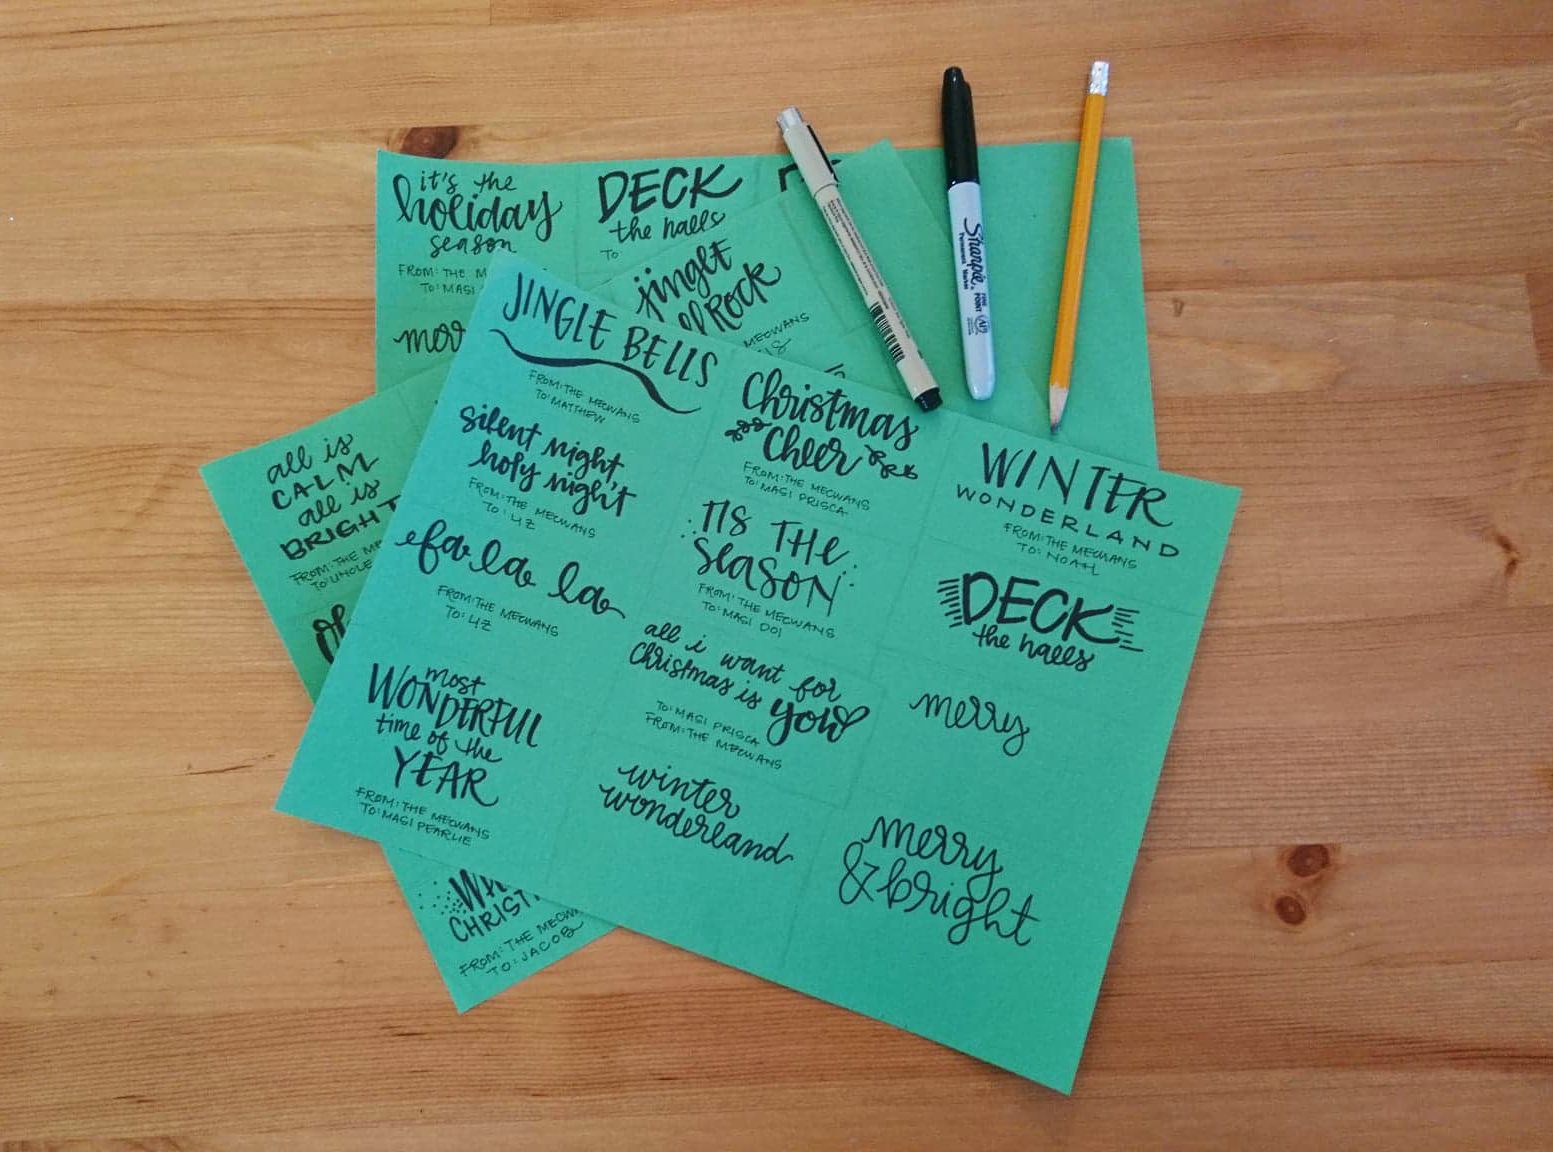 it's the
holiday
season
FROM: THE
TO: MASI
DECK
the halls
TO
jingle
ROCK
MECWANS
merr
all is
CALM
all is
BRIGHT
FROM: THE ME
TO: UNCLE
JINGLE BELLS
FROM: THE MECWANS
TO: MATTHEW
silent night,
holy night
FROM: THE MECWANS
TO: LIZ
fa la la la
FROM: THE MECWANS
TO: LIZ
most
WONDERFUL
time of the
YEAR
FROM: THE MECWANS
TO: MASI PEARLIE
Christmas
Cheer
FROM: THE MECWANS
TO: MASI PRISCA
TIS THE
SEASON
FROM: THE MECWANS
TO: MASI DOI
all i want for
Christmas is
you
TO: MASI PRISCA
FROM: THE MECWANS
winter
wonderland
WINTER
WONDERLAND
FROM: THE MECWANS
TO: NOAH
DECK
the halls
merry
merry
& bright
CHRIST
FROM: THE MECW
TO: JACOB
Sharpie
Permanent Marker
FINE
POINT